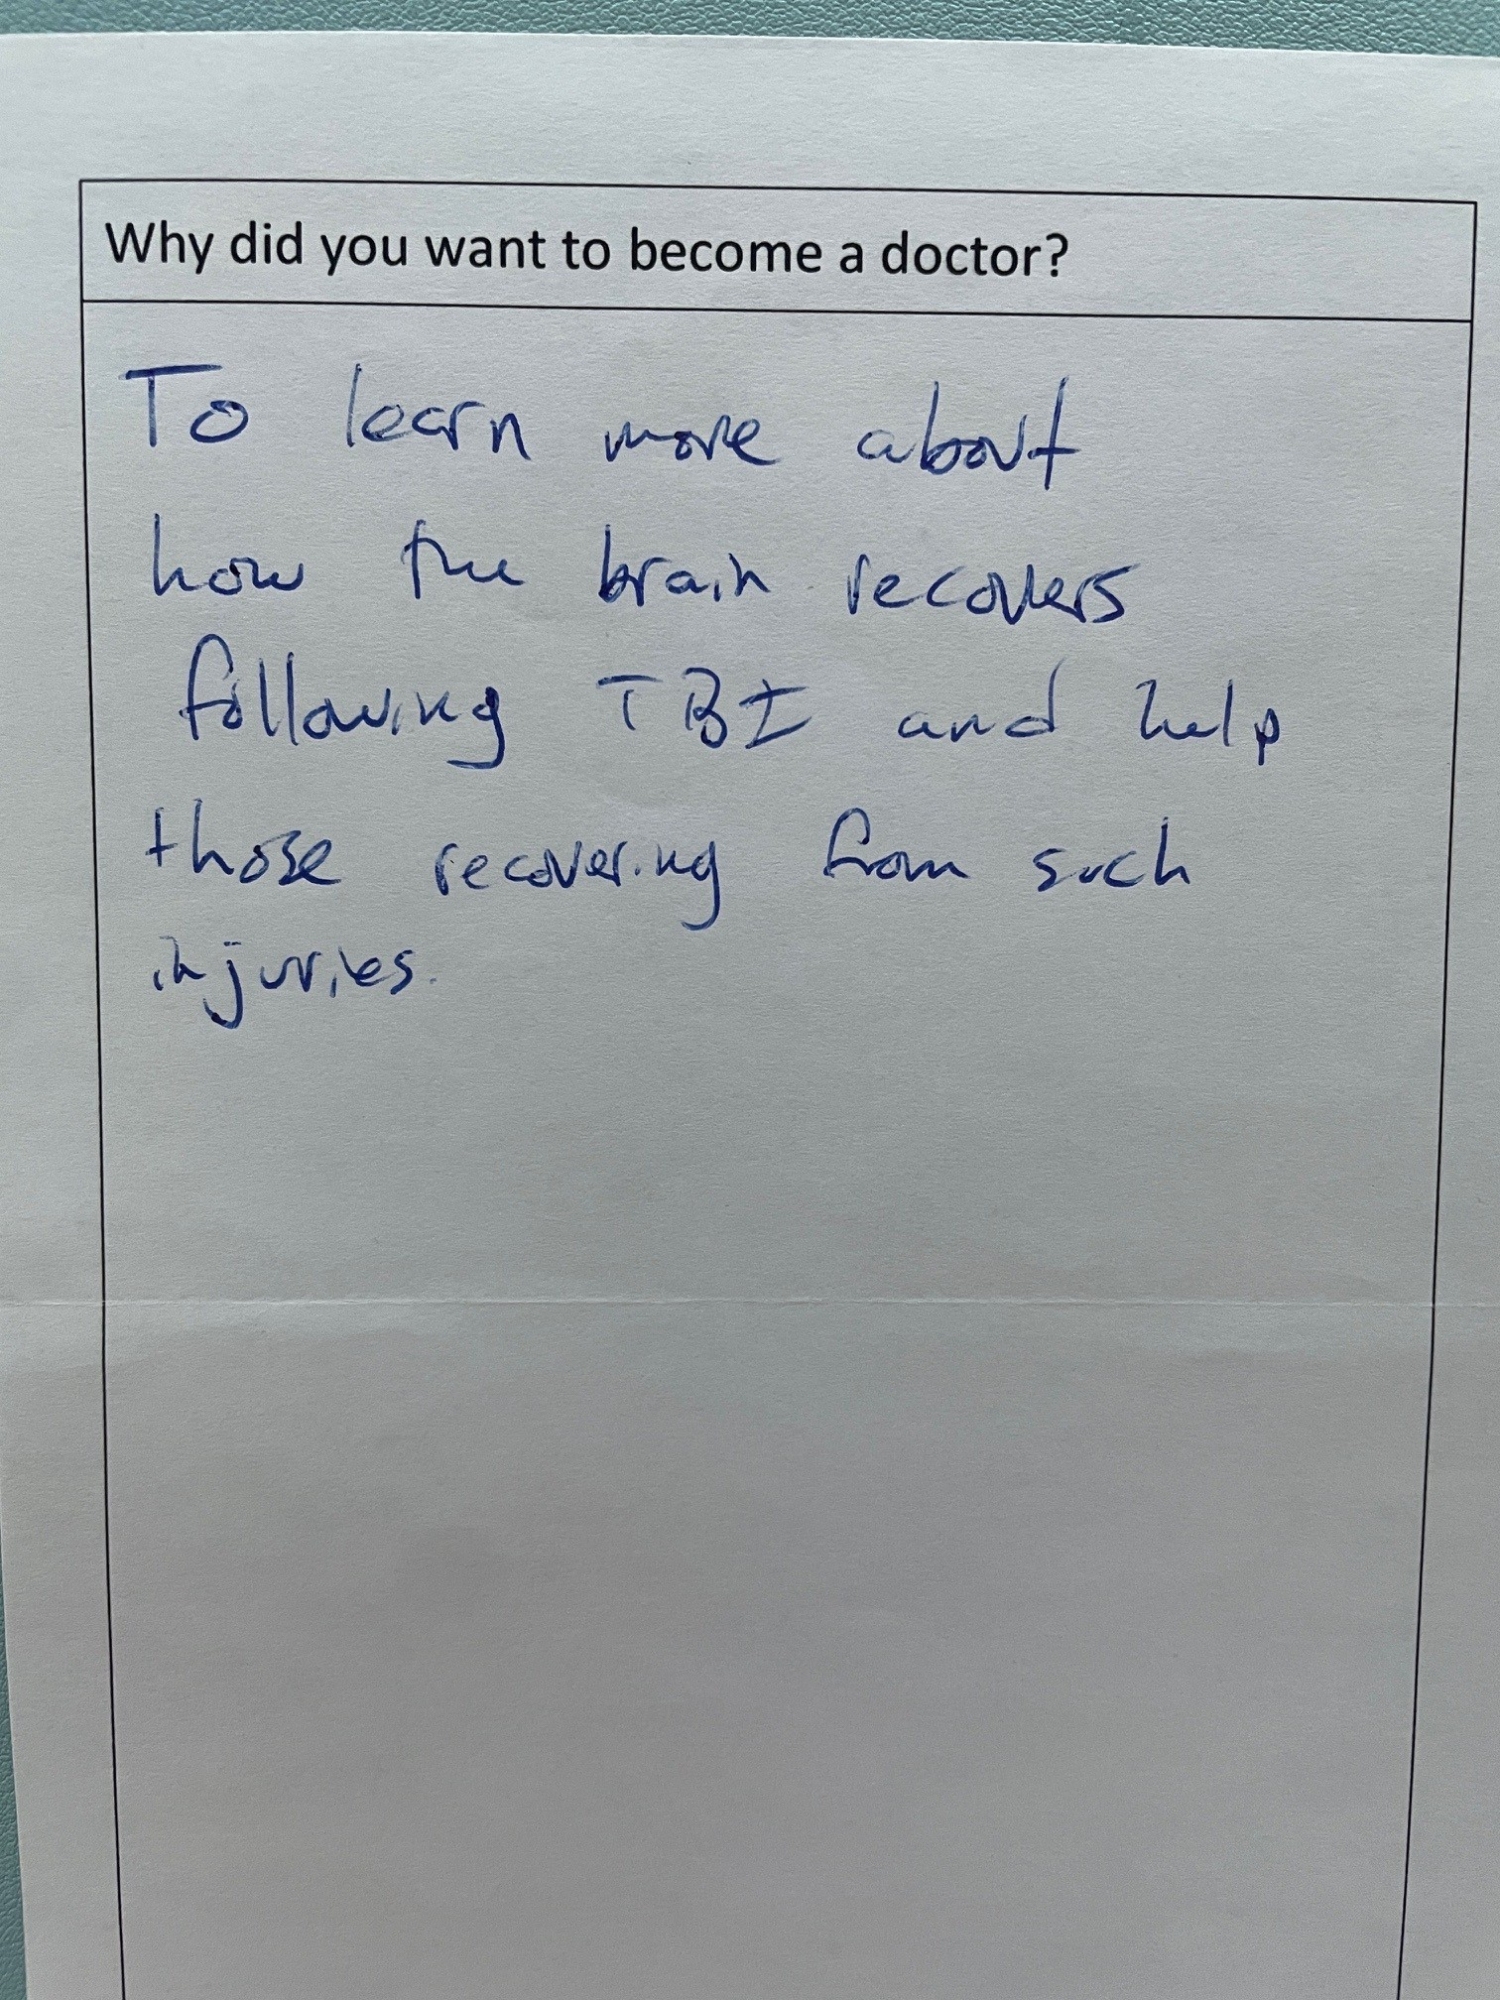 Why did you want to become a doctor?
To learn more about
how the brain recovers
following TBI and help
those recovering from such
injuries.